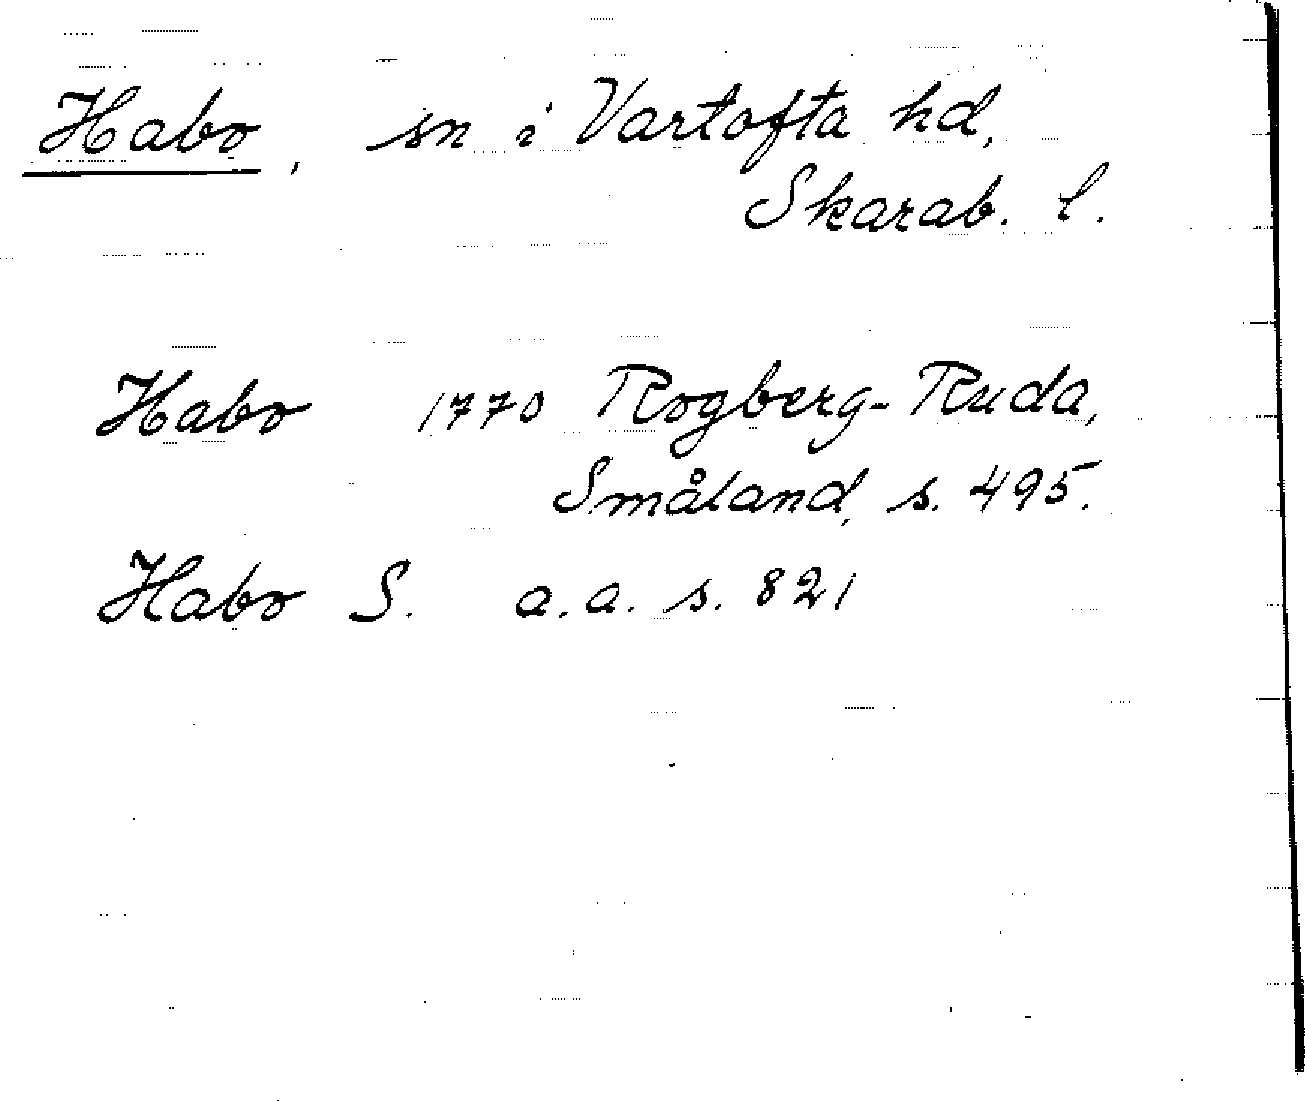 Habo, sn i Vartofta hd,
Skarab. l.
Habo 1770 Rogberg-Ruda,
Småland, s. 495.
Habo S. a.a. s. 821